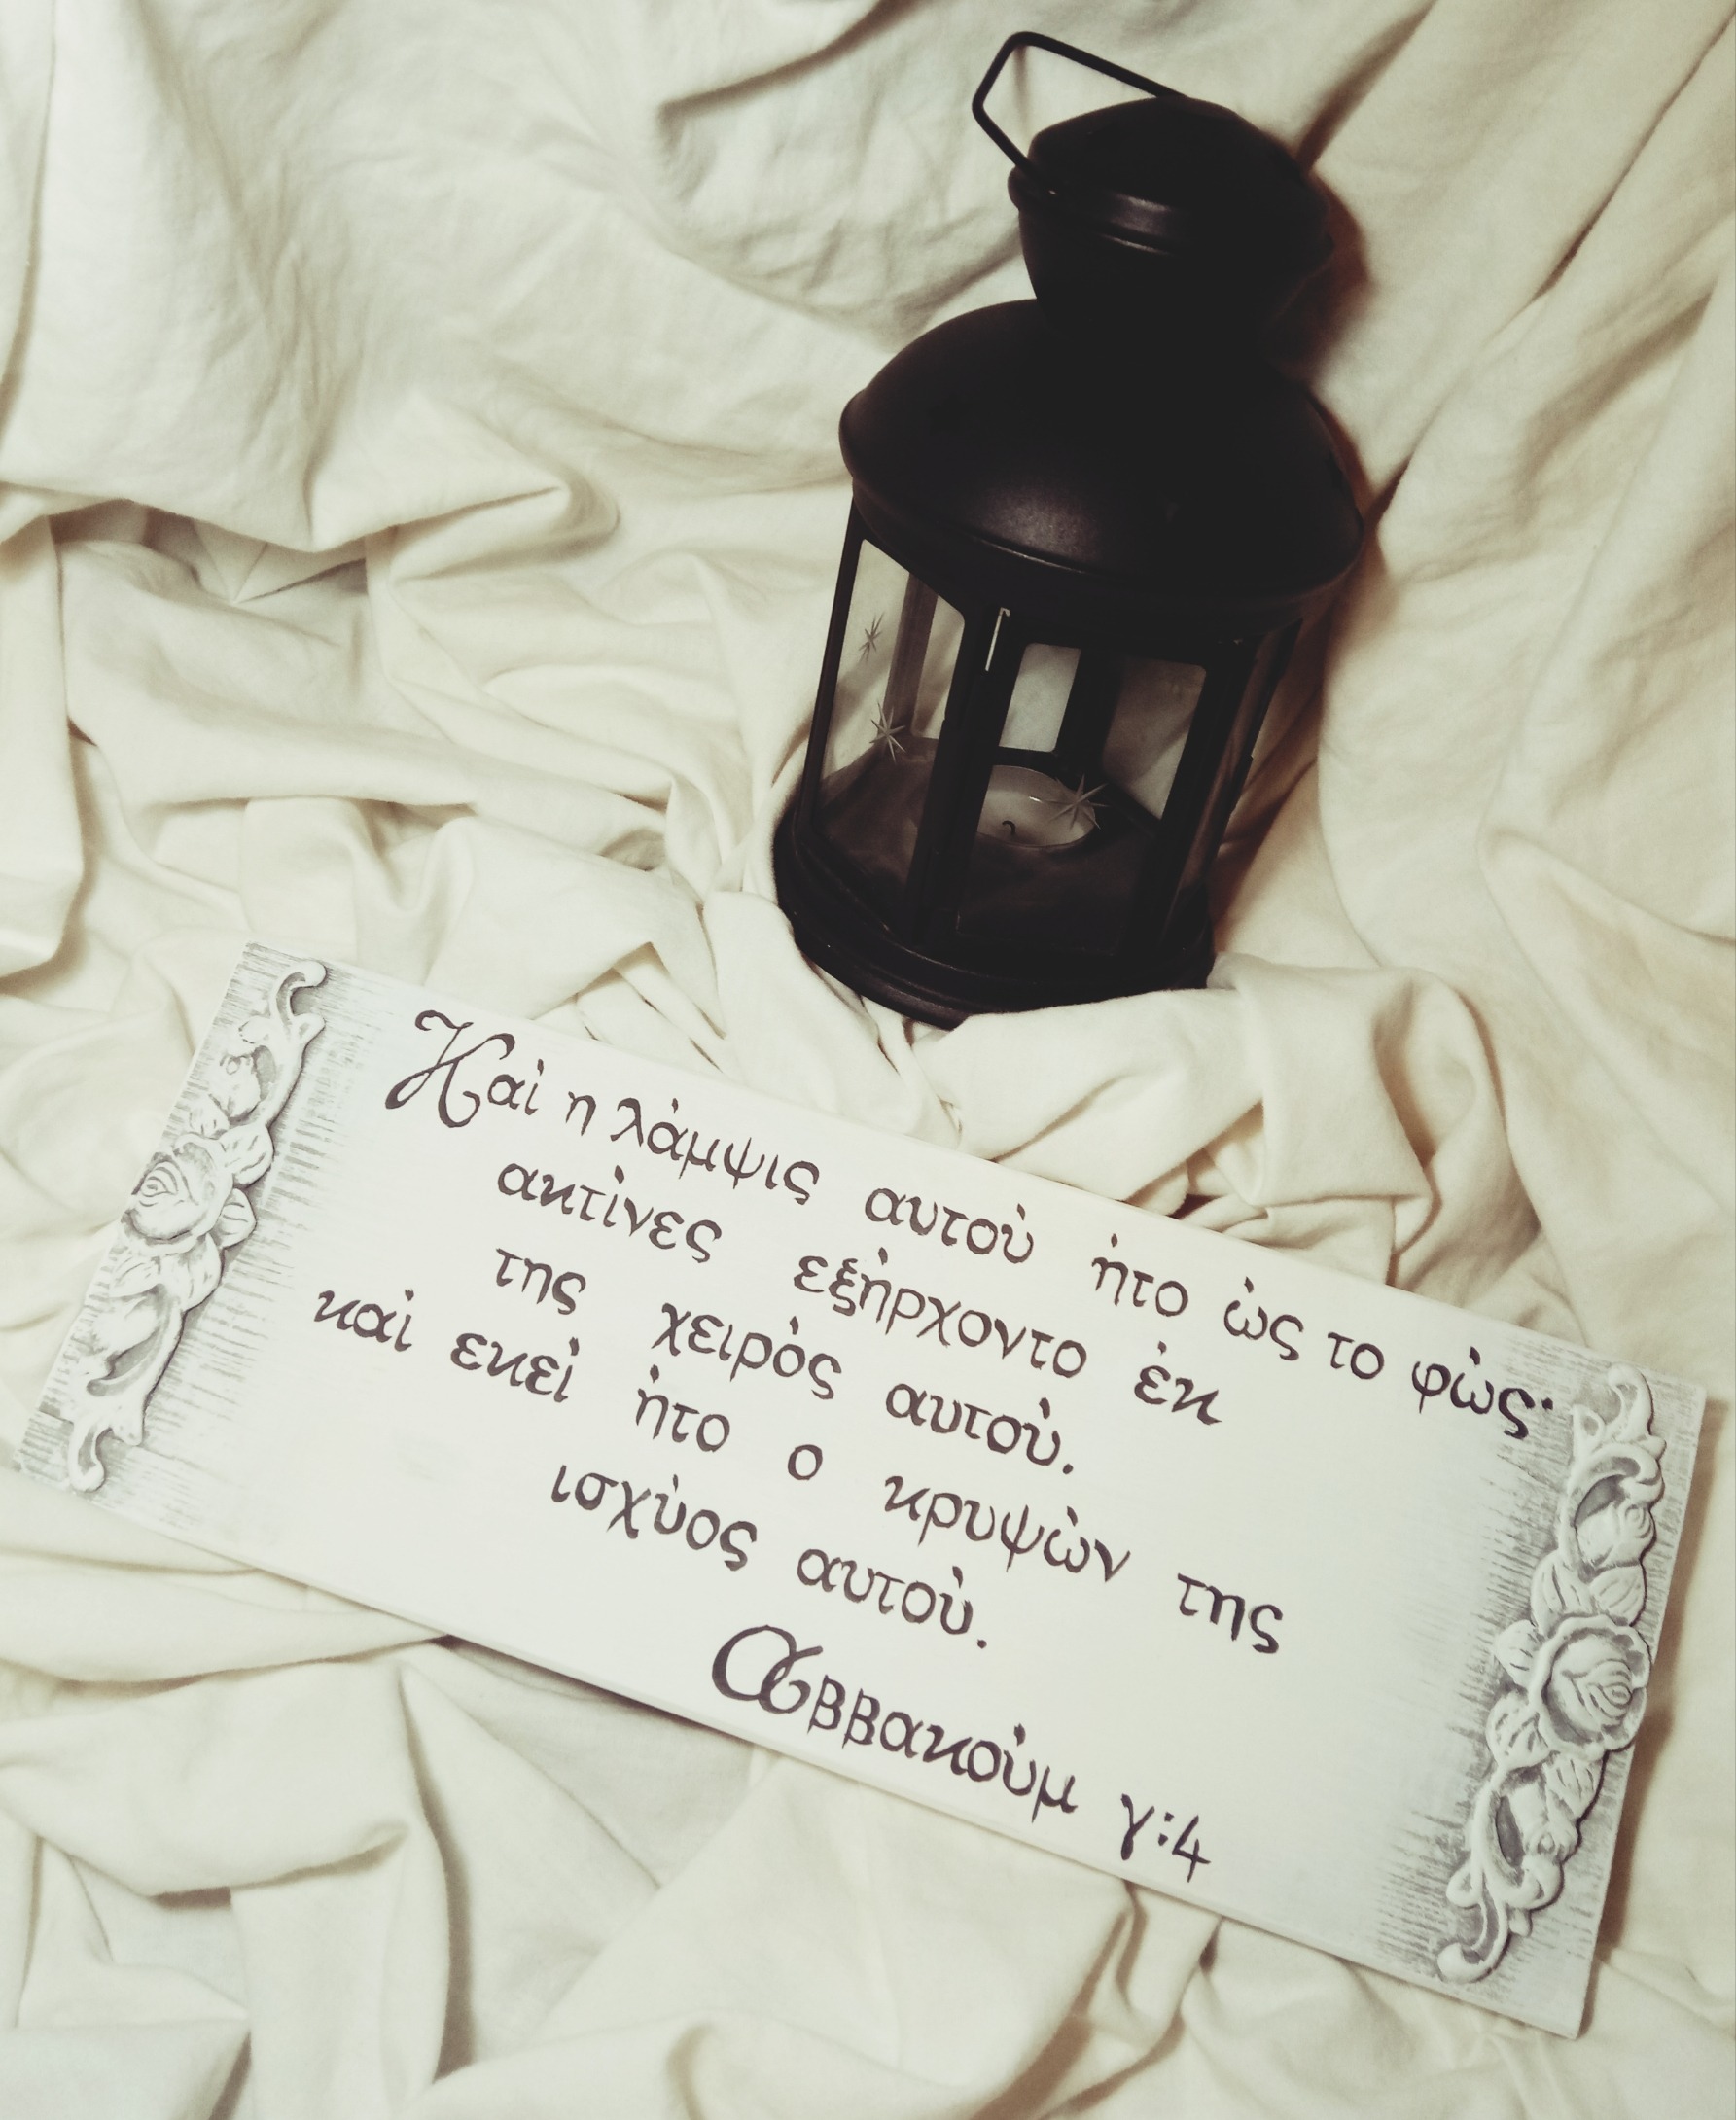 Καί η λάμψις αυτού ήτο ώς το φώς·
ακτίνες εξήρχοντο έκ
της χειρός αυτού.
καί εκεί ήτο ο κρυψών της
ισχύος αυτού.
Αββακούμ γ:4